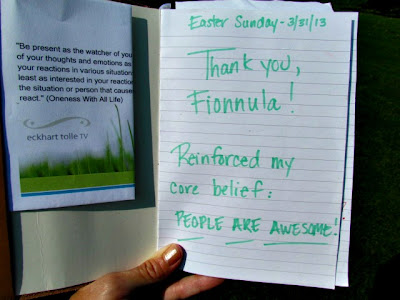 "Be present as the watcher of you
of your thoughts and emotions as
your reactions in various situation
least as interested in your reaction
the situation or person that cause
react." (Oneness With All Life)
eckhart tolle TV
Easter Sunday - 3/31/13
Thank you,
Fionnula!
Reinforced my
core belief:
PEOPLE ARE AWESOME!